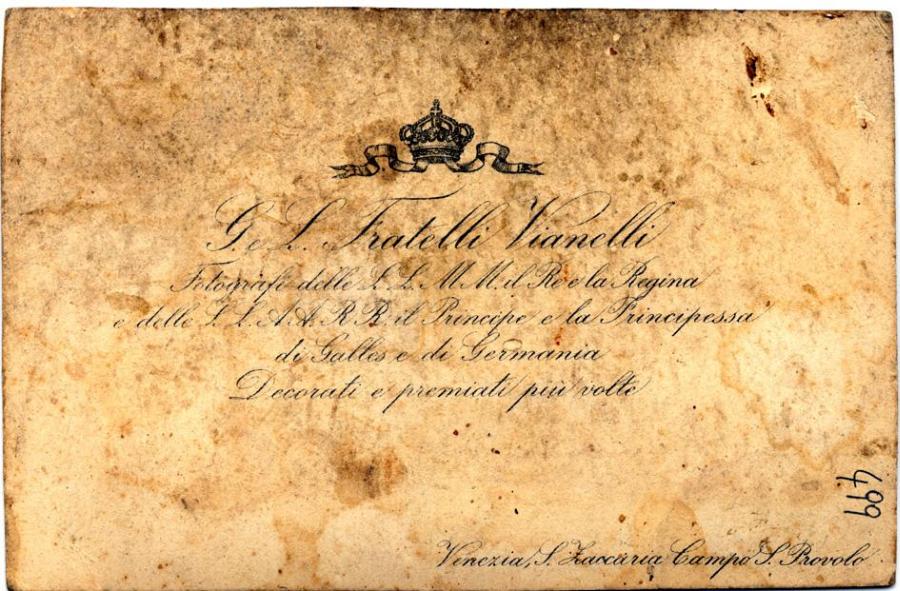 G. e L. Fratelli Vianelli
Fotografi delle L. L. M. M. il Re e la Regina
e delle L. L. A. A. R. R. il Principe e la Principessa
di Galles e di Germania
Decorati e premiati più volte
499
Venezia, S. Zaccaria Campo S. Provolo